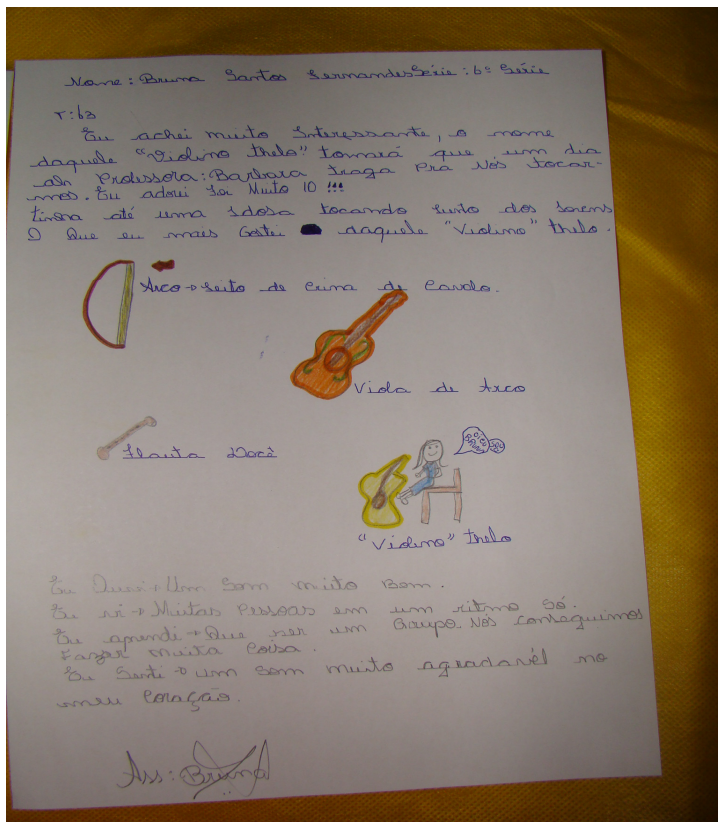 Nome: Bruna Santos Fernandes Série: 6ª Série
T: 63
Eu achei muito Interessante, o nome
daquele "violino thelo" tomará que um dia
a Professora: Barbara traga Pra Nós tocar-
mos. Eu adorei foi Muito 10 !!!
Tinha até uma Idosa tocando junto dos jovens
O Que eu mais Gostei daquele "Violino" thelo.
Arco → feito de Crina de Cavalo.
Viola de Arco
Flauta Docê
OI EU
"Violino" thelo
Eu Ouvi → Um Som muito Bom.
Eu vi → Muitas Pessoas em um ritmo Só.
Eu aprendi → Que ser um Grupo Nós conseguimos
Fazer muita Coisa.
Eu Senti → um Som muito agradavél no
meu Coração.
Ass: Bruna